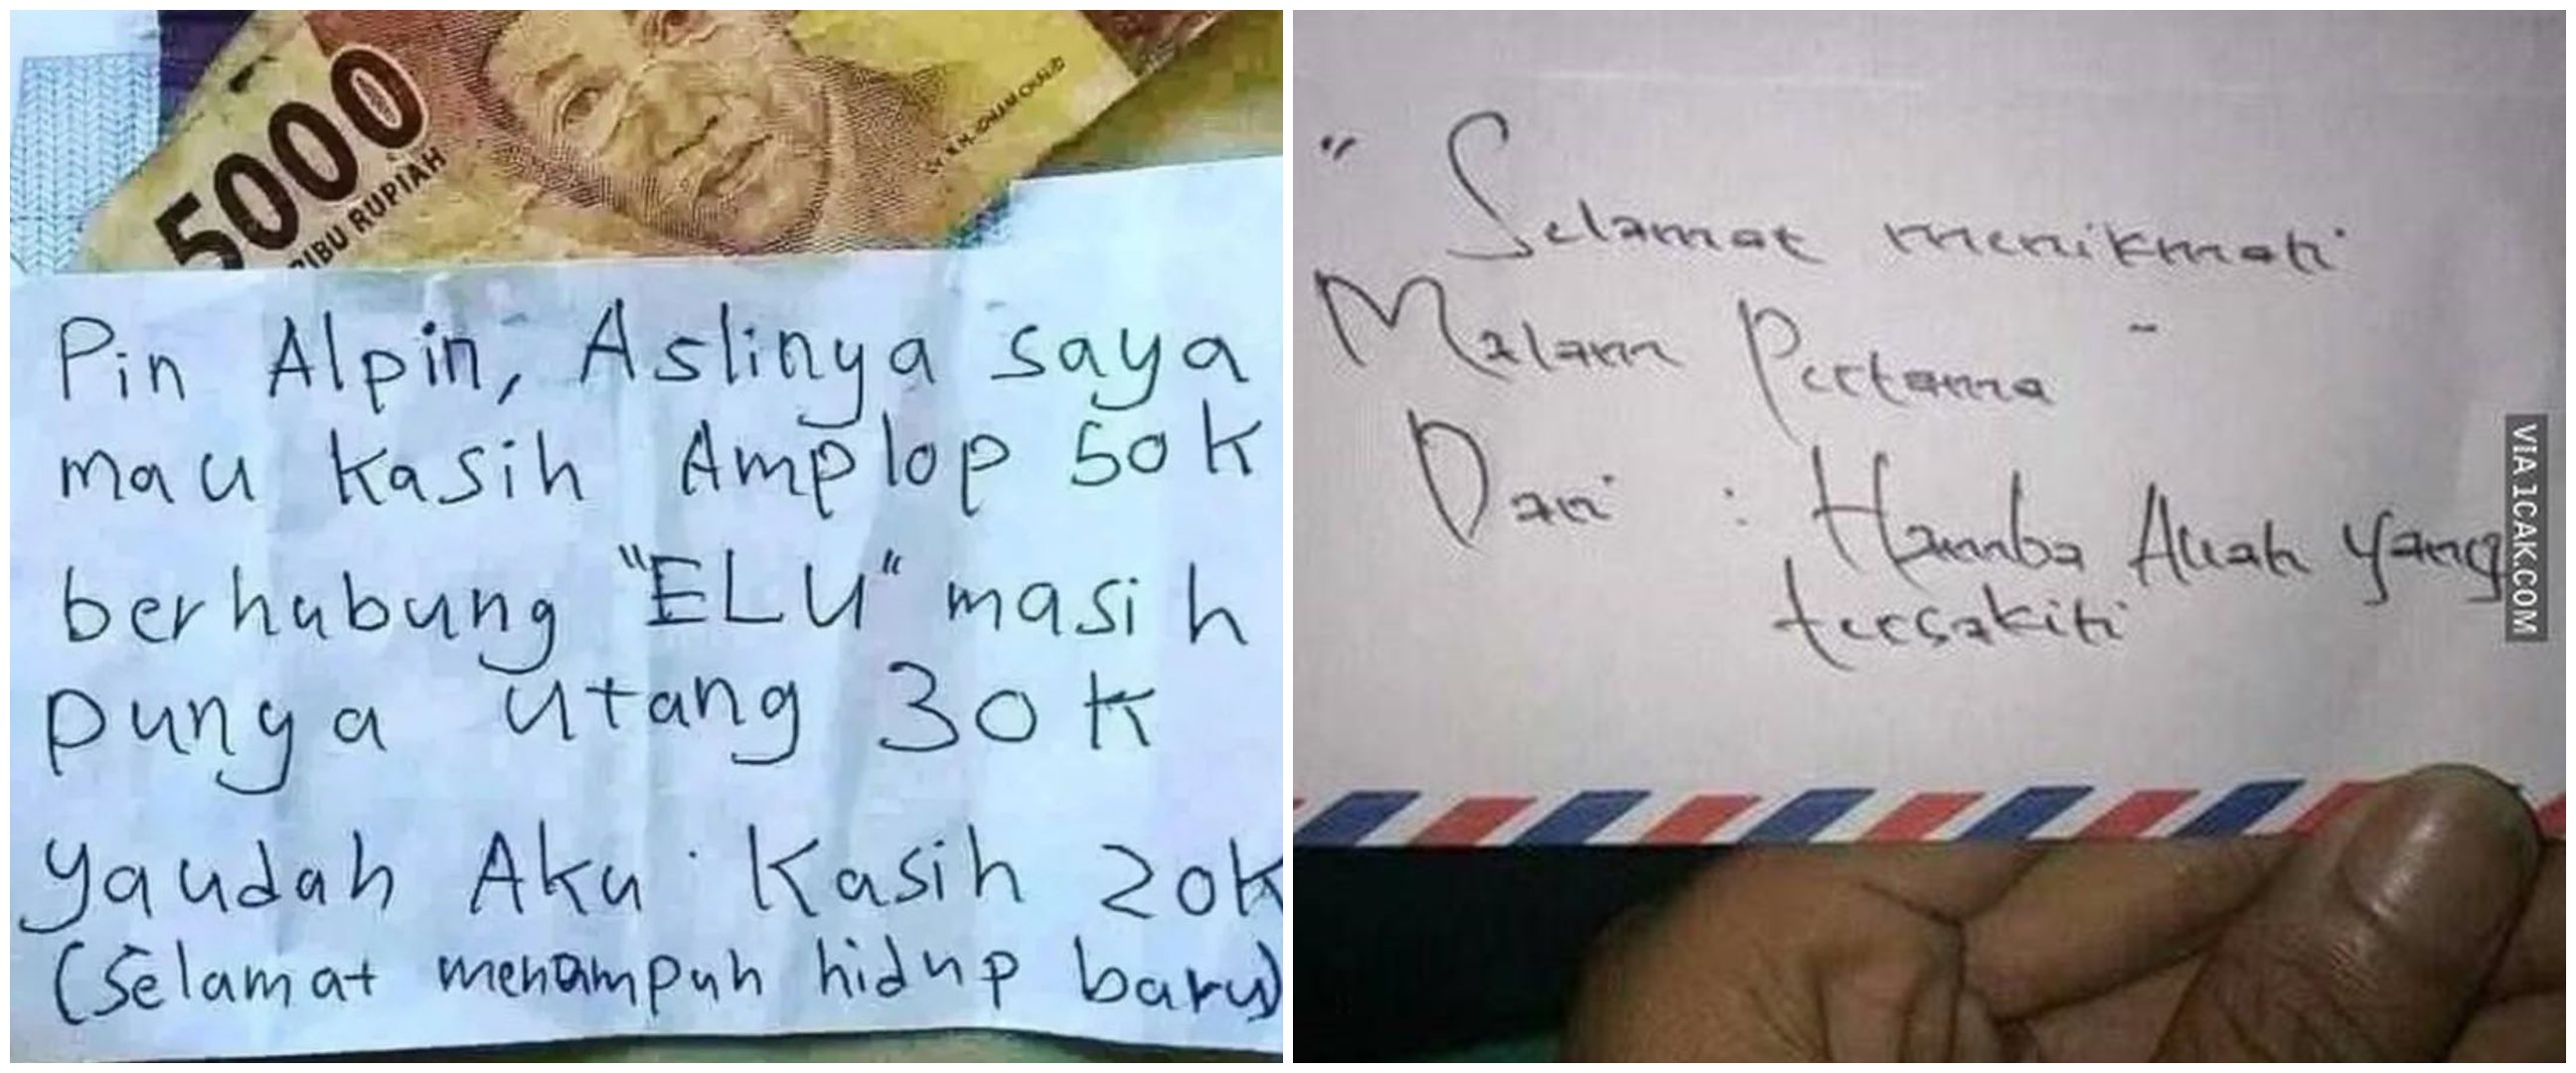 5000
RIBU RUPIAH
Pin Alpin, Aslinya saya
mau kasih Amplop 50K
berhubung "ELU" masih
punya utang 30K
yaudah Aku Kasih 20K
(Selamat menampuh hidup baru)
" Selamat menikmati
Malam Pertama "
Dari : Hamba Allah yang
tersakiti
VIA 1CAK.COM